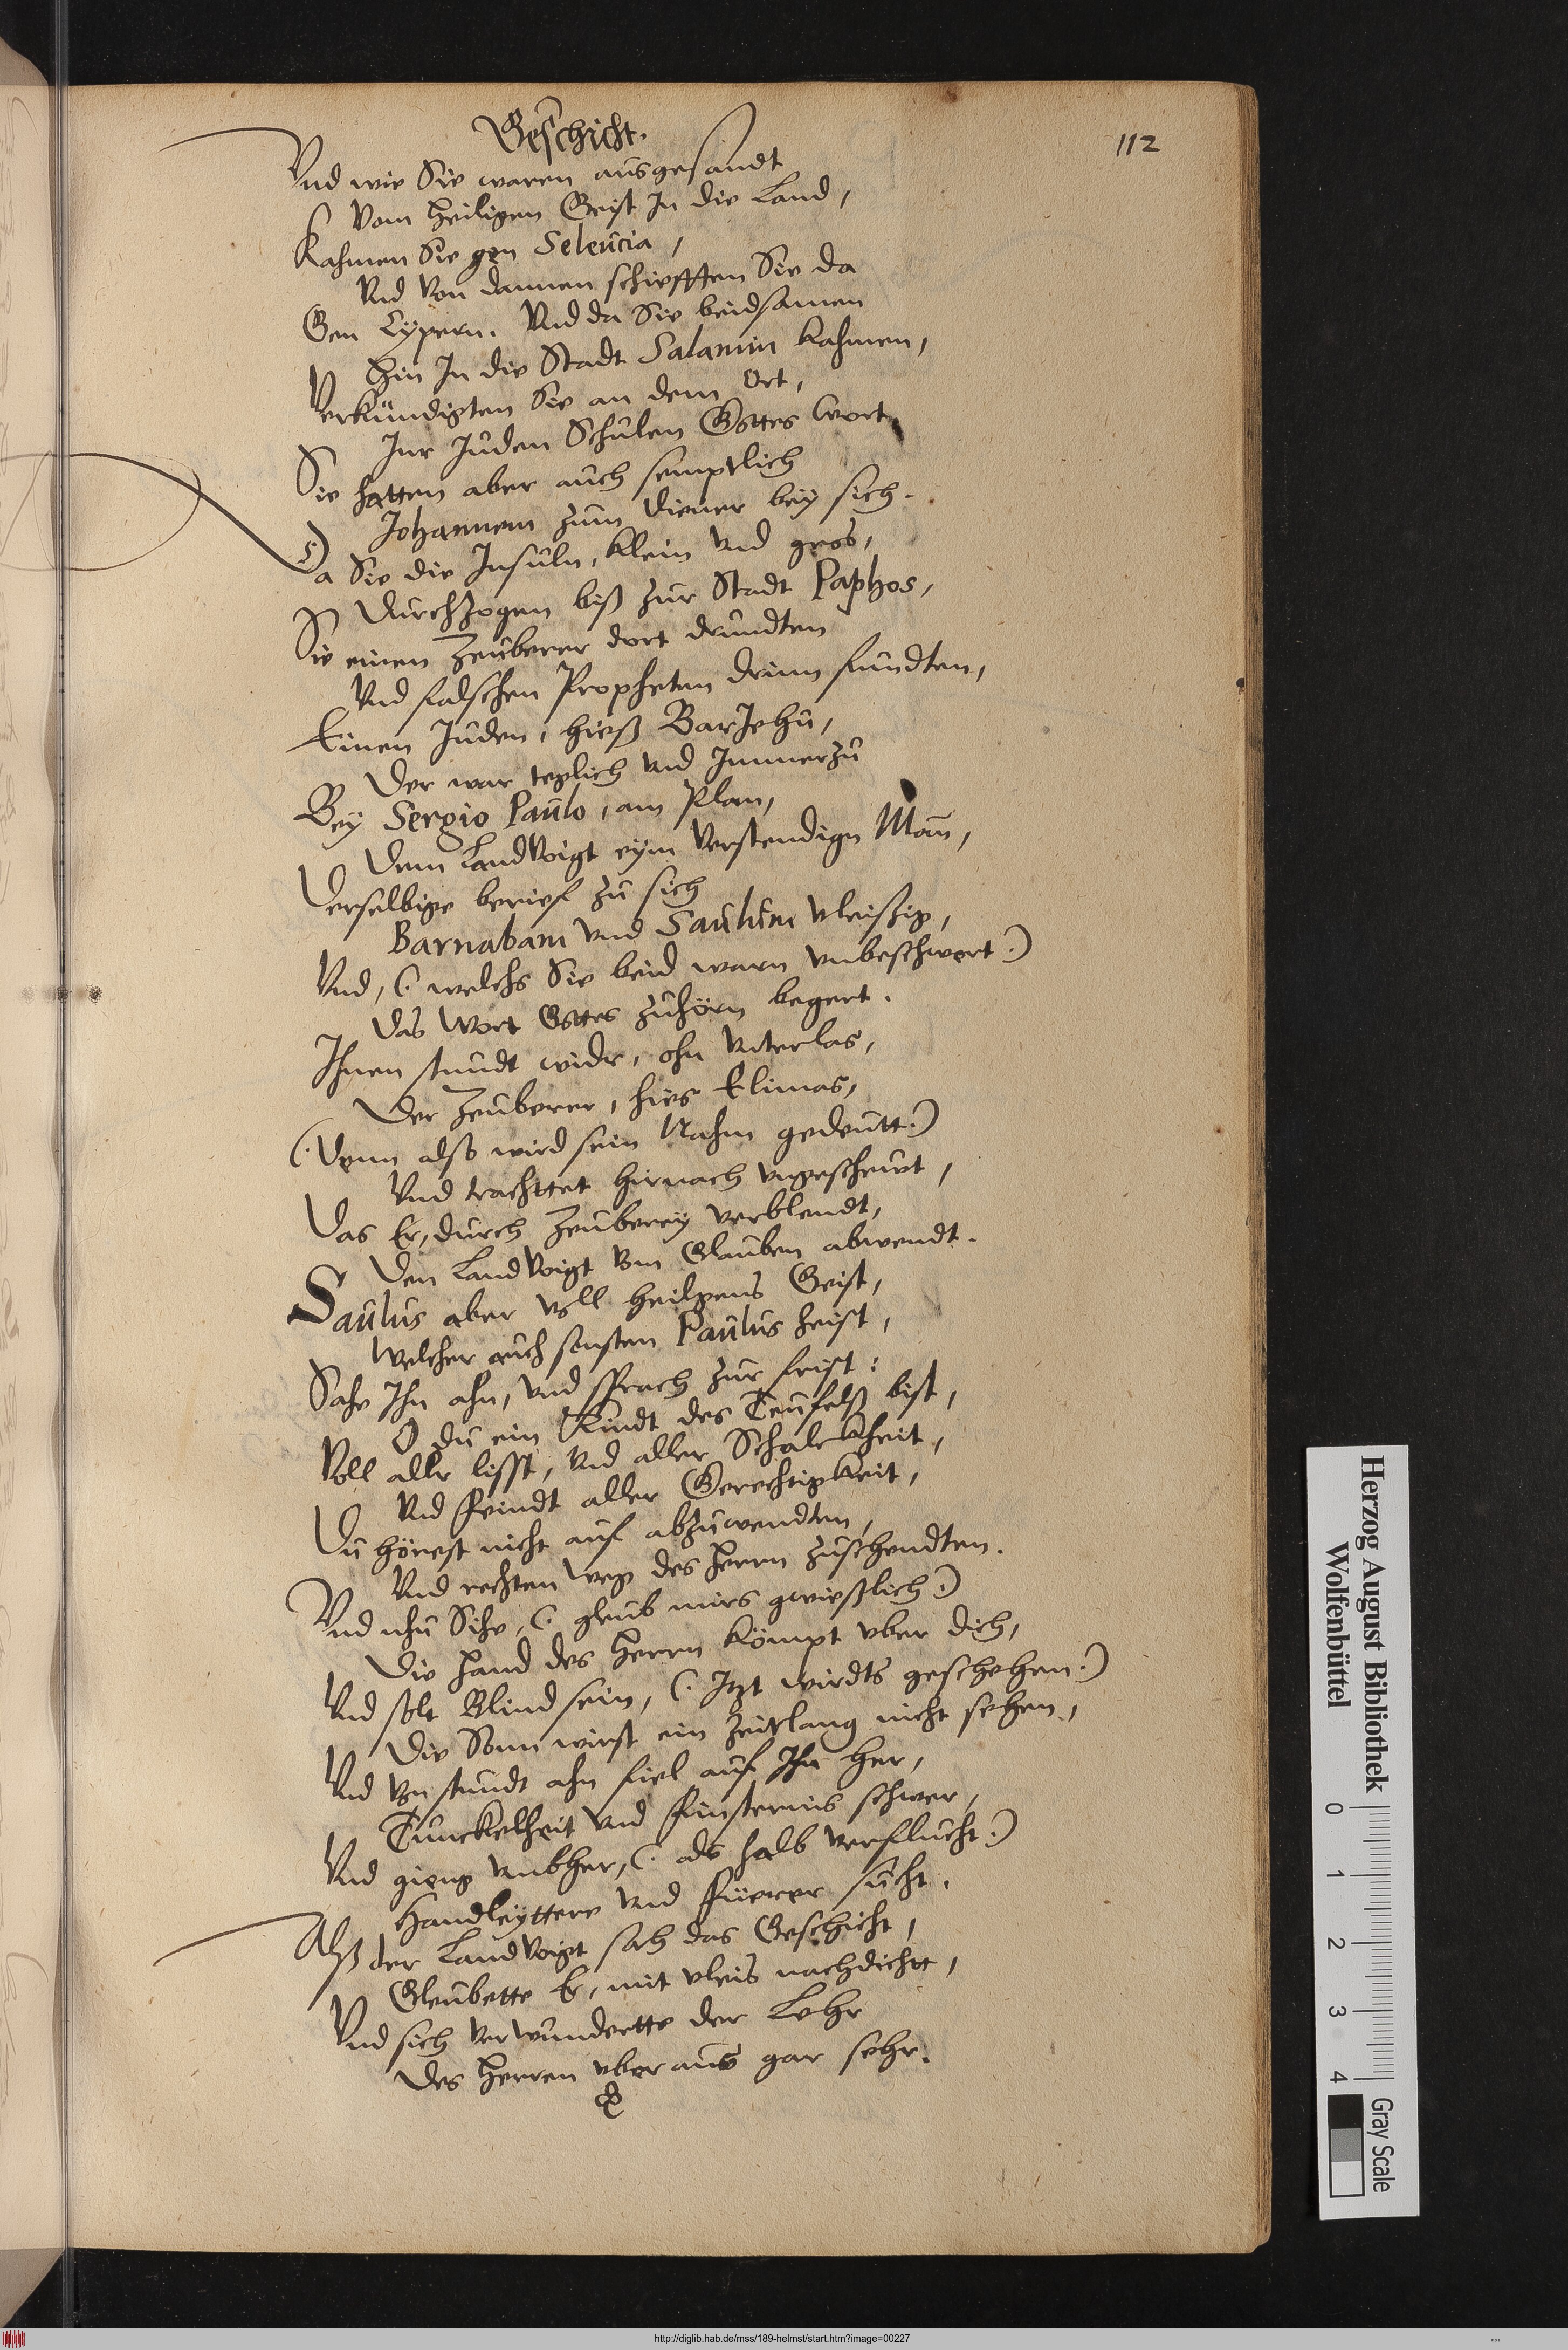 Geschicht.
112
Vnd wie Sie waren ausgesandt
Vom Heiligen Geist In die Land,
Kahmen Sie gen Seleucia,
Vnd Von dannen schiefften Sie da
Gen Cypern. Vnd da Sie beidsamen
Hin In die Stadt Salamin kahmen,
Verkündigten Sie an dem Ort,
Inr Juden Schulen Gottes Wort,
Sie hatten aber auch semptlich
Johannem zum Diener bey sich.
Da Sie die Insuln, klein vnd gros,
Durchzogen biß zur Stadt Paphos,
Sie einen Zeuberer dort drundten
Vnd falschen Propheten drinn fundten,
Einen Juden, hieß BarJehu,
Der war teglich vnd Immerzu
Bey Sergio Paulo, am Plan,
Dem LandVoigt eym Verstendign Man,
Derselbige berief zu sich
Barnabam vnd Saulum vleißig,
Vnd, (. welchs Sie beid warn vnbeschwert .)
Das Wort Gottes zuhörn begert.
Ihnen stundt widr, ohn vnterlas,
Der Zeuberer, hies Elimas,
(. Denn also wird sein Nahm gedeutt .)
Vnd trachttet hirnach vngescheut,
Das Er, durch Zeuberey verblendt,
Den LandVoigt Vom Glauben abwendt.
Saulus aber Voll heilgens Geist,
Welcher auch sonsten Paulus heist,
Sahe Ihn ahn, vnd sprach zur frist:
O du ein Kindt des Teufelß bist,
Voll aller lisst, vnd aller Schalckheit,
Vnd feindt aller Gerechtigkeit,
Du hörest nicht auf abzuwendten,
Vnd rechten Weg des Herrn zuschendten.
Vnd nhu Sihe, (. gleub mirs gwießlich .)
Die Hand des Herrn kömpt vber dich,
Vnd solt Blind sein, (. Itzt wirdts geschehen .)
Die Sonn wirst ein Zeitlang nicht sehen,
Vnd Von stundt ahn fiel auf Ihn her,
Tunckelheit vnd finsternis schwer,
Vnd gieng vmbher, (. als halb verflucht .)
Handleyttere vnd füerer sucht.
Alß der LandVoigt sah das Geschicht,
Gleubette Er, mit vleis nachdicht,
Vnd sich verwundertte der Lehr
Des Herren vber aus gar sehr.
Herzog August Bibliothek
Wolfenbüttel
0 1 2 3 4
Gray Scale
http://diglib.hab.de/mss/189-helmst/start.htm?image=00227